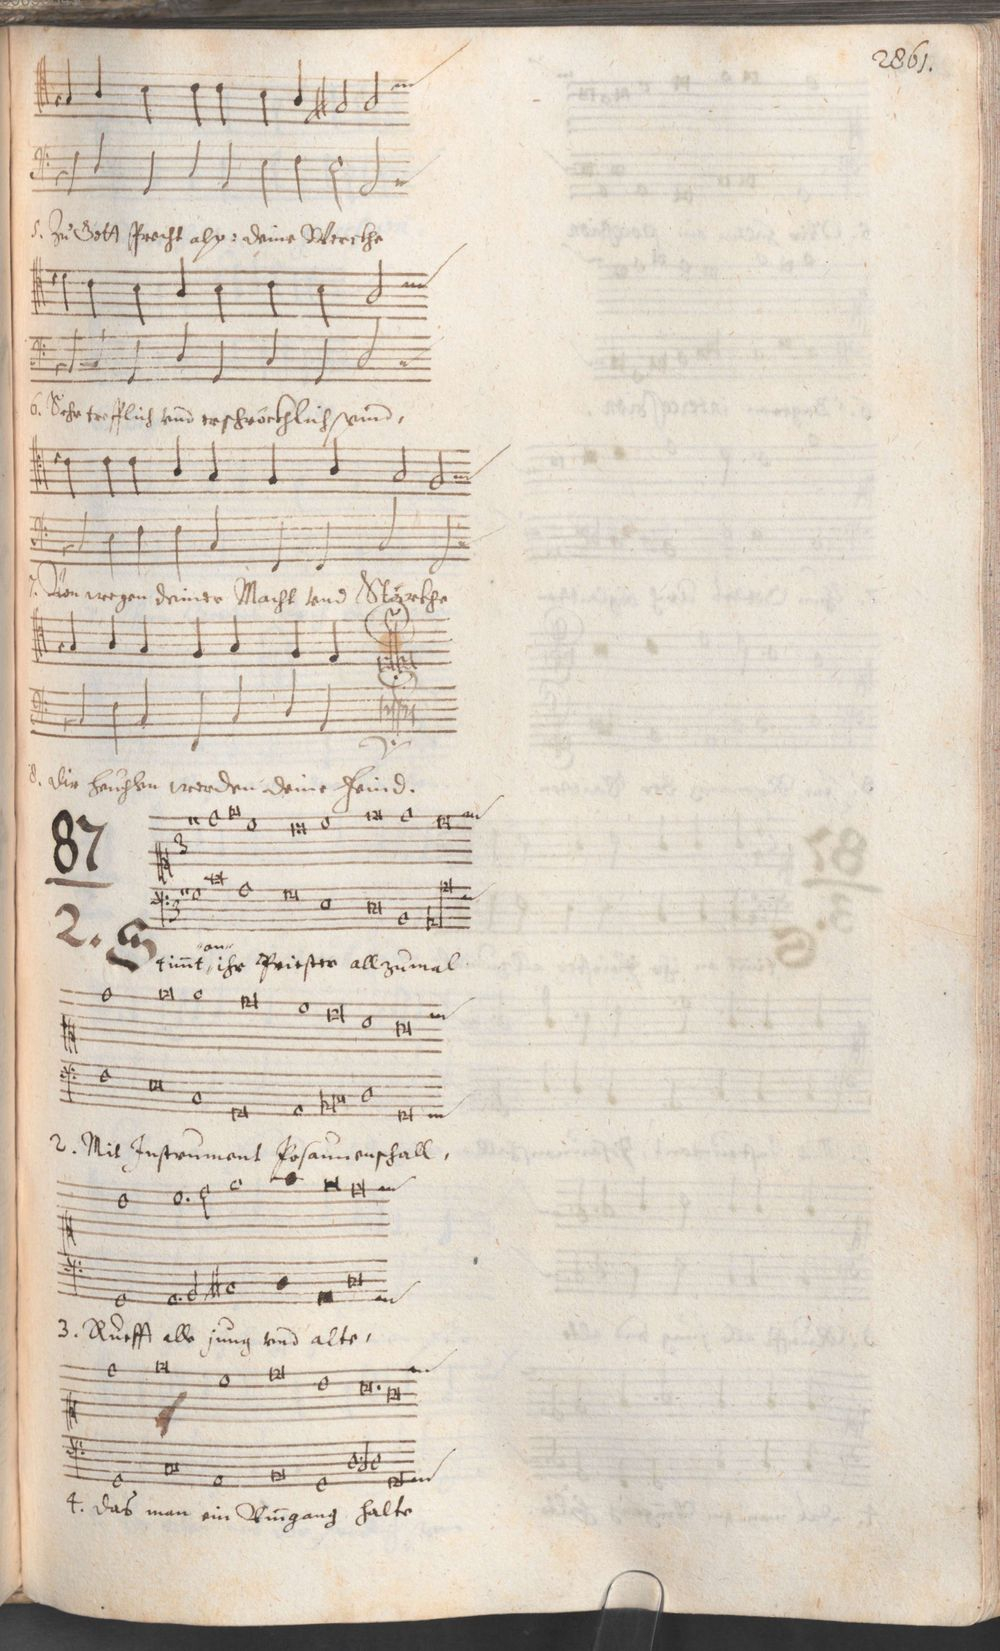 2861.
5. Zu Gott sprecht alß: deine Wercke
6. Sehr trefflich vnd erschröcklich seind,
7. Von wegen deiner Macht vnd Stärcke
8. dir heuchlen werden deine Feind.
87
2. Stim̃t an ihr Priester allzumal
2. Mit Instrument Posaunenschall,
3. Rufft alle jung vnd alte,
4. das man ein Vm̃gang halte